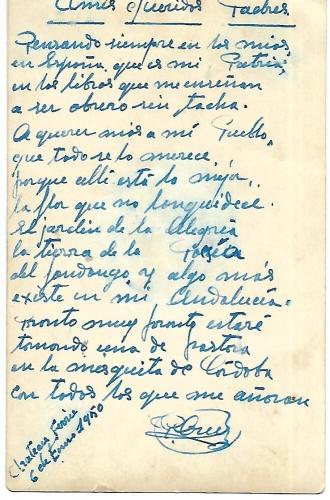 A mis queridos Padres.
Pensando siempre en los mios,
en España que es mi Patria,
en los libros que me enseñan
a ser obrero sin tacha.
A querer más a mi Pueblo,
que todo se lo merece,
porque alli está lo mejor,
la flor que no languidece.
El jardin de la Alegria
la tierra de la
del fandango y algo más
existe en mi Andalucia.
Pronto muy pronto estaré
tomando cena de pastora
en la mesquita de Córdoba
con todos los que me añoran
6 de Enero 1950